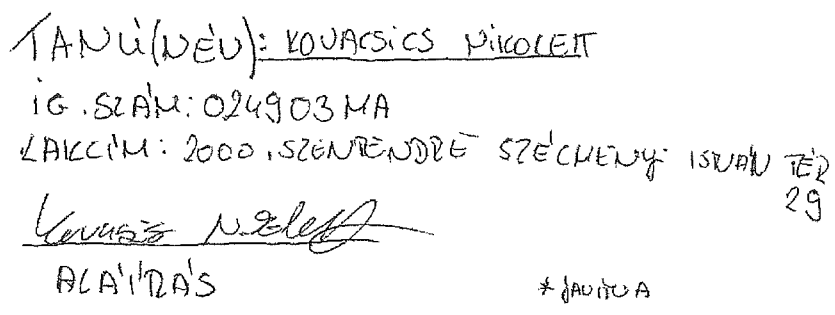 TANÚ (NÉV): KOVACSICS NIKOLETT
IG. SZÁM: 024903MA
LAKCÍM: 2000. SZENTENDRE SZÉCHENYI ISTVÁN TÉR
29
Kovacsics Nikolett
ALÁÍRÁS
* JAVÍTVA